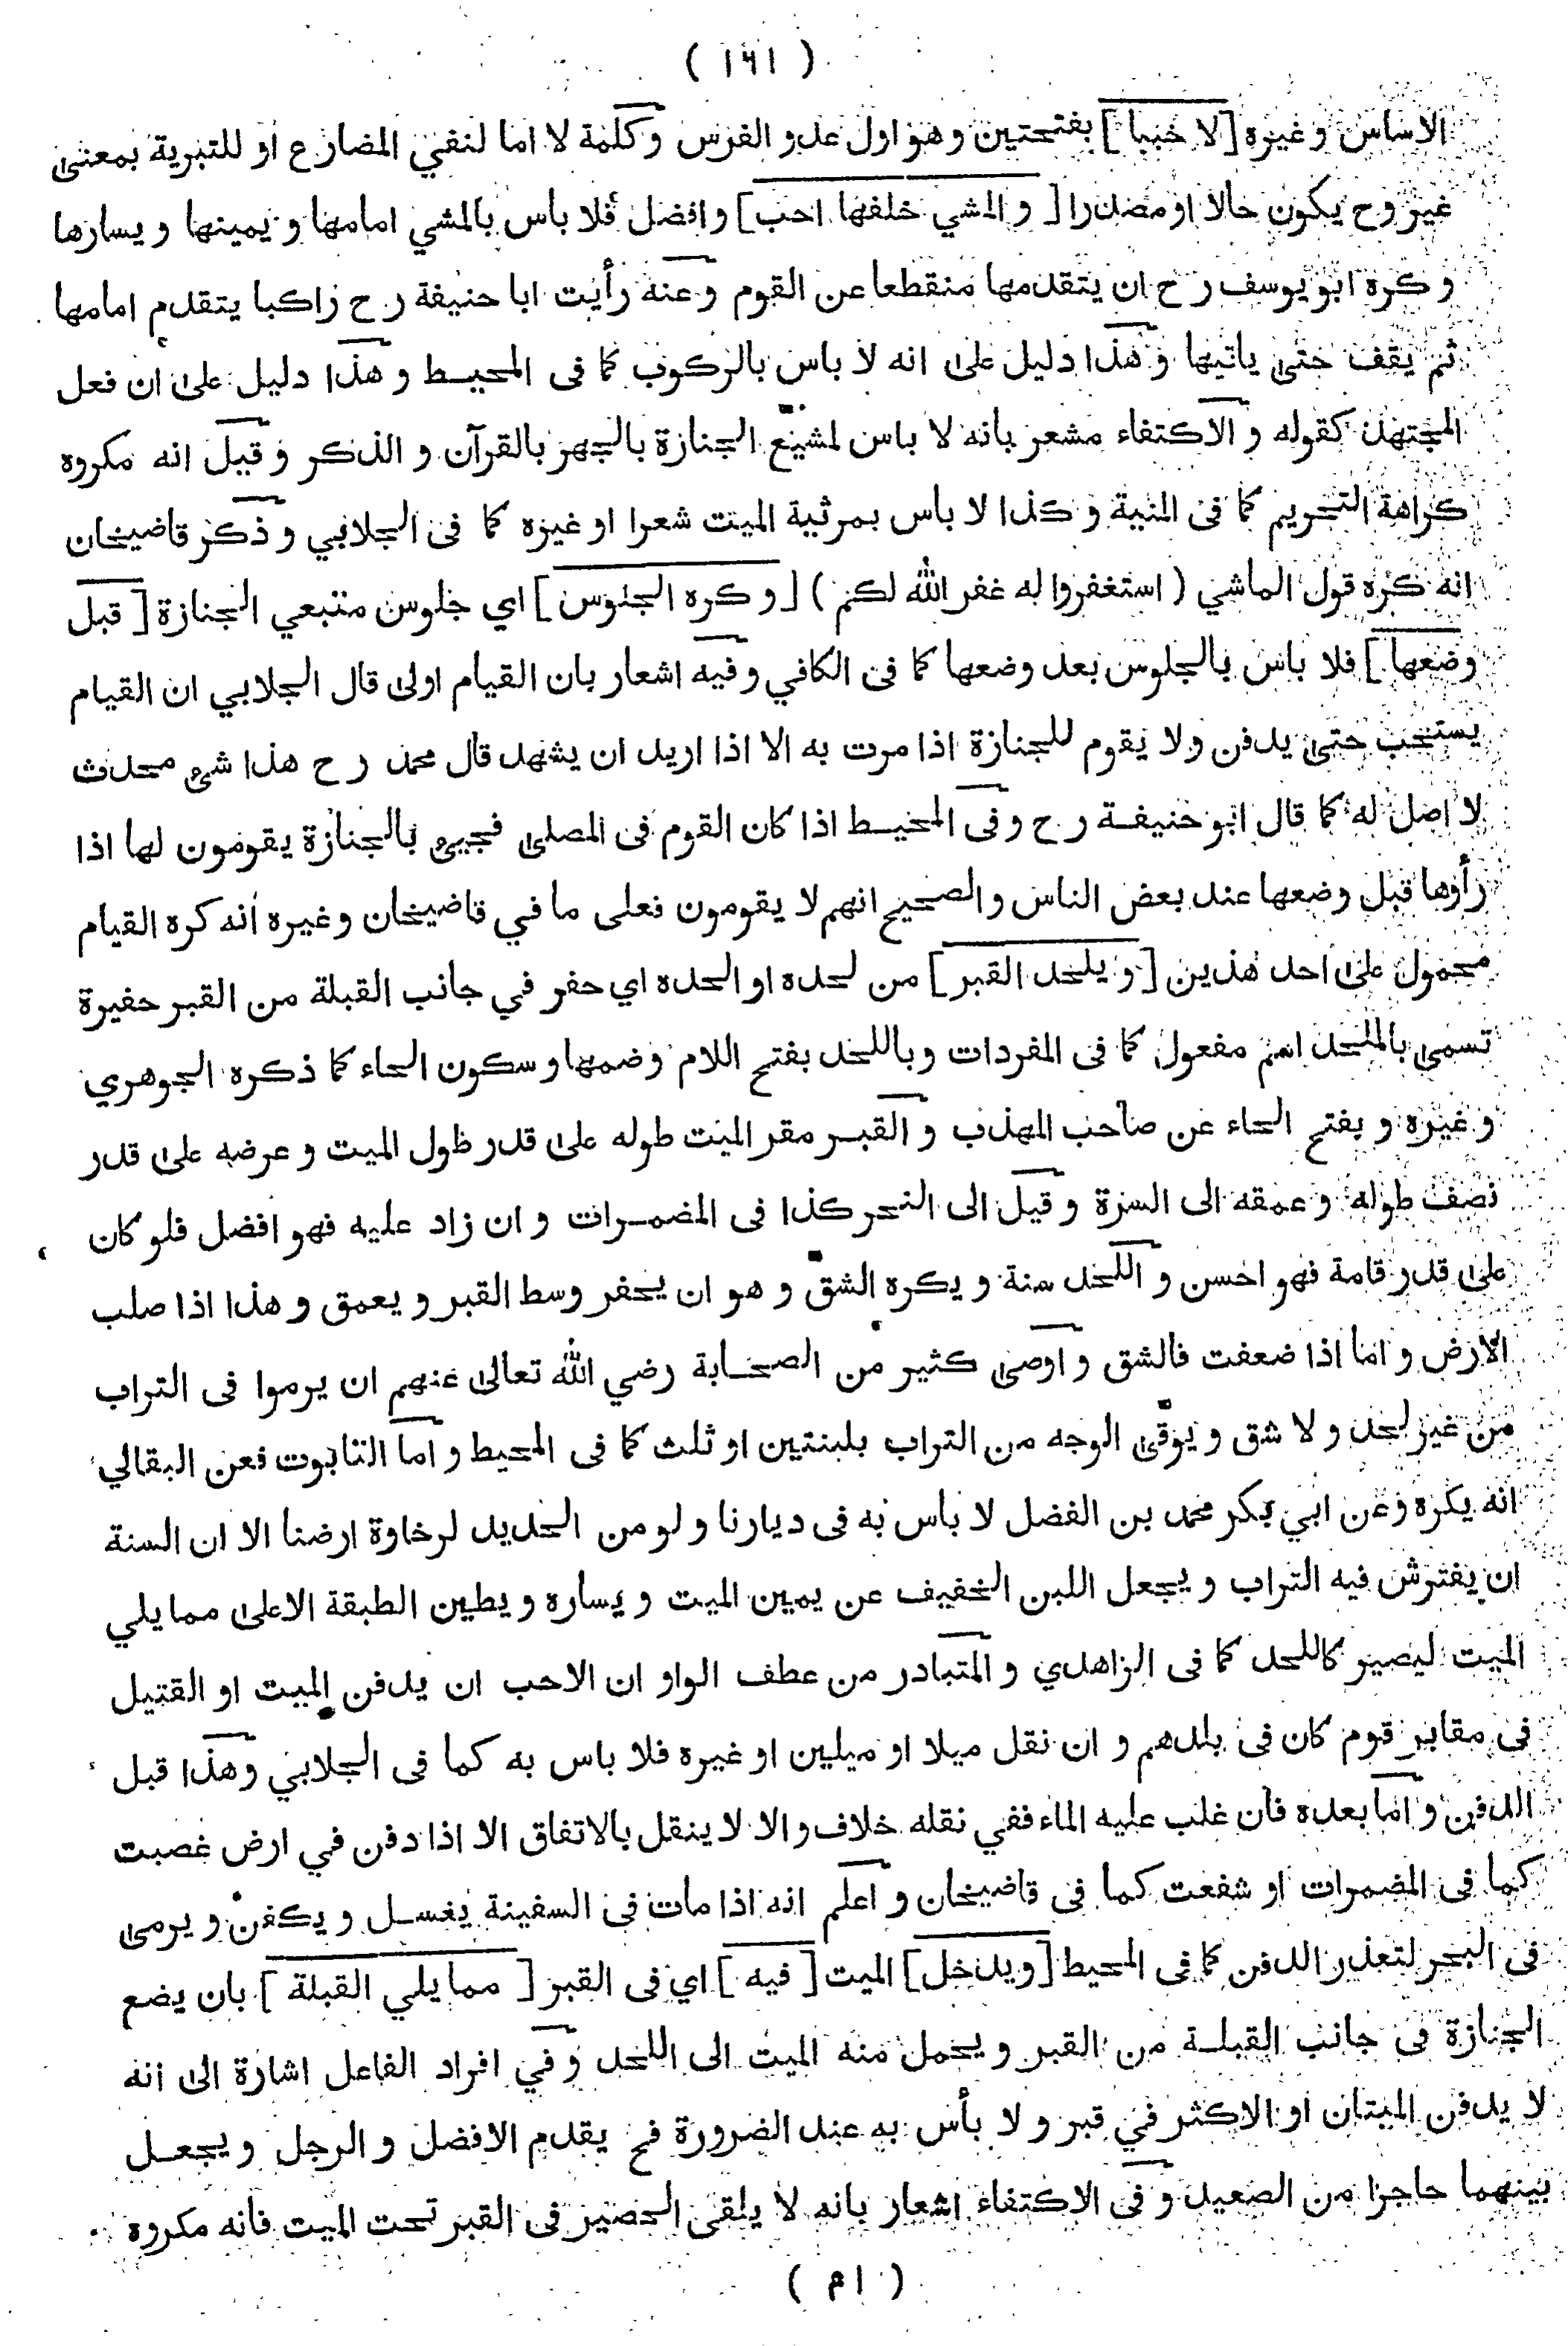 ( ١٦١ )
الاساس وغيره [ لا خببا ] بفتحتين وهو اول عدو الفرس وكلمة لا اما لنفي المضارع او للتبرية بمعنى
غير وح يكون حالا او مصدرا [ والمشي خلفها احب ] وافضل فلا باس بالمشي امامها و يمينها و يسارها
وكره ابو يوسف رح ان يتقدمها منقطعا عن القوم وعنه رأيت ابا حنيفة رح راكبا يتقدم امامها
ثم يقف حتى ياتيها وهذا دليل على انه لا باس بالركوب كما فى المحيط وهذا دليل على ان فعل
المجتهد كقوله والاكتفاء مشعر بانه لا باس لمشيّع الجنازة بالجهر بالقرآن و الذكر وقيل انه مكروه
كراهة التحريم كما فى المنية وكذا لا بأس بمرثية الميت شعرا او غيره كما فى الجلابي وذكر قاضيخان
انه كره قول الماشي ( استغفروا له غفر الله لكم ) [ وكره الجلوس ] اي جلوس متبعي الجنازة [ قبل
وضعها ] فلا باس بالجلوس بعد وضعها كما فى الكافي وفيه اشعار بان القيام اولى قال الجلابي ان القيام
يستحب حتى يدفن ولا يقوم للجنازة اذا مرت به الا اذا اريد ان يشهد قال محمد رح هذا شئ محدث
لا اصل له كما قال ابو حنيفة رح وفى المحيط اذا كان القوم فى المصلى فجيئ بالجنازة يقومون لها اذا
رأوها قبل وضعها عند بعض الناس والصحيح انهم لا يقومون فعلى ما في قاضيخان وغيره انه كره القيام
محمول على احد هذين [ و يلحد القبر ] من لحده او الحده اي حفر في جانب القبلة من القبر حفيرة
تسمى بالملحد اسم مفعول كما فى المفردات وباللحد بفتح اللام وضمها وسكون الحاء كما ذكره الجوهري
وغيره و بفتح الحاء عن صاحب المهذب و القبر مقر الميت طوله على قدر طول الميت و عرضه على قدر
نصف طوله وعمقه الى السرة وقيل الى النحر كذا فى المضمرات و ان زاد عليه فهو افضل فلو كان
على قدر قامة فهو احسن و اللحد سنة و يكره الشقّ و هو ان يحفر وسط القبر و يعمق و هذا اذا صلب
الارض و اما اذا ضعفت فالشق و اوصى كثير من الصحابة رضي الله تعالى عنهم ان يرموا فى التراب
من غير لحد و لا شق و يوقّى الوجه من التراب بلبنتين او ثلث كما فى المحيط و اما التابوت فعن البقالي
انه يكره وعن ابي بكر محمد بن الفضل لا باس به فى ديارنا و لو من الحديد لرخاوة ارضنا الا ان السنة
ان يفترش فيه التراب و يجعل اللبن الخفيف عن يمين الميت و يساره و يطين الطبقة الاعلى مما يلي
الميت ليصير كاللحد كما فى الزاهدي و المتبادر من عطف الواو ان الاحب ان يدفن الميت او القتيل
فى مقابر قوم كان فى بلدهم و ان نقل ميلا او ميلين او غيره فلا باس به كما فى الجلابي وهذا قبل
الدفن و اما بعده فان غلب عليه الماء ففي نقله خلاف والا لا ينقل بالاتفاق الا اذا دفن في ارض غصبت
كما فى المضمرات او شفعت كما فى قاضيخان و اعلم انه اذا مات فى السفينة يغسل و يكفن و يرمى
فى البحر لتعذر الدفن كما فى المحيط [ ويدخل ] الميت [ فيه ] اي فى القبر [ مما يلي القبلة ] بان يضع
الجنازة فى جانب القبلة من القبر و يحمل منه الميت الى اللحد وفي افراد الفاعل اشارة الى انه
لا يدفن الميتان او الاكثر في قبر و لا بأس به عند الضرورة فح يقدم الافضل و الرجل و يجعل
بينهما حاجزا من الصعيد وفى الاكتفاء اشعار بانه لا يلقى الحصير فى القبر تحت الميت فانه مكروه
( ا م )